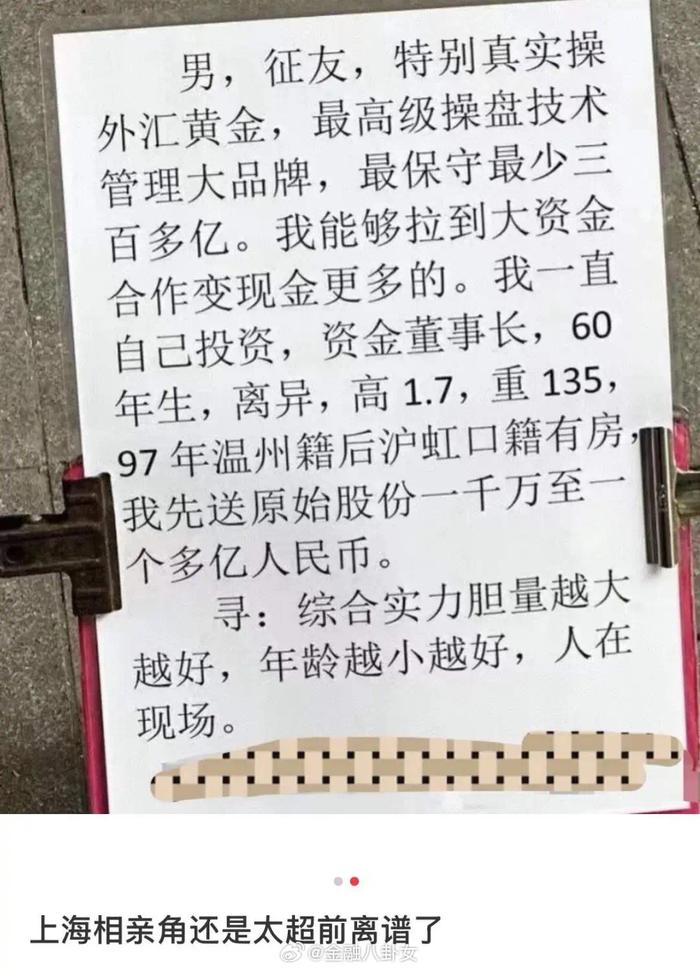 男，征友，特别真实操
外汇黄金，最高级操盘技术
管理大品牌，最保守最少三
百多亿。我能够拉到大资金
合作变现金更多的。我一直
自己投资，资金董事长，60
年生，离异，高 1.7，重 135，
97 年温州籍后沪虹口籍有房，
我先送原始股份一千万至一
个多亿人民币。
寻：综合实力胆量越大
越好，年龄越小越好，人在
现场。
上海相亲角还是太超前离谱了
@金融八卦女